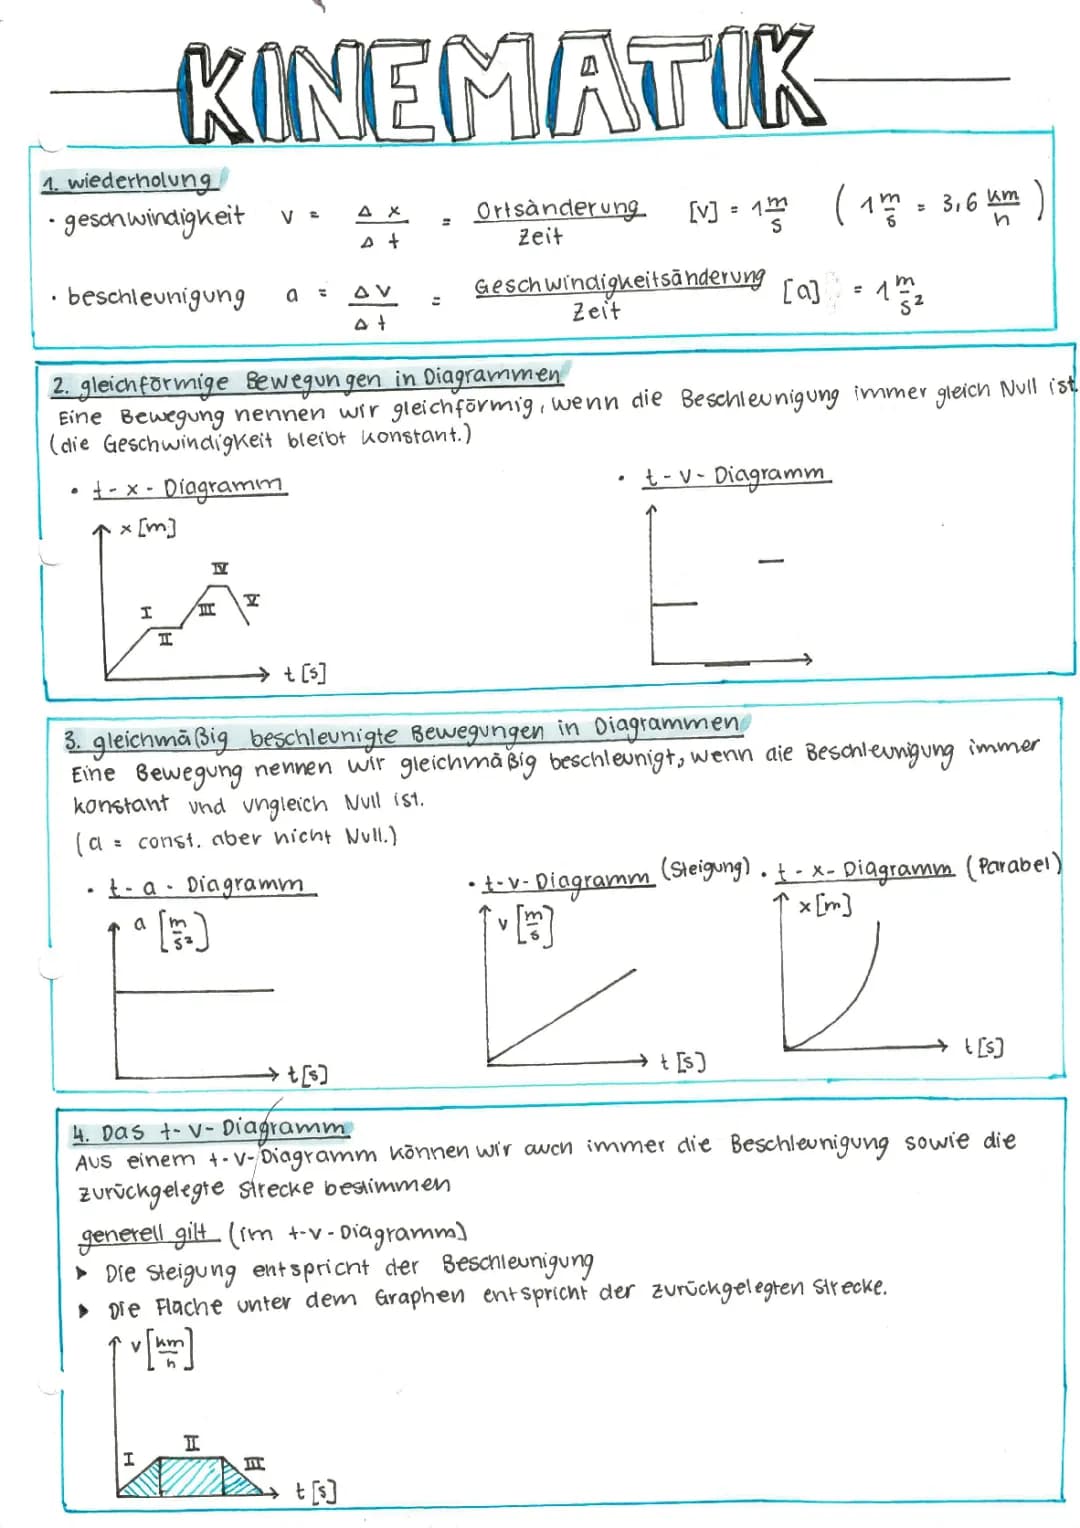 KINEMATIK
1. wiederholung
· geschwindigkeit v = Δx/Δt = Ortsänderung/Zeit [v] = 1 m/s (1 m/s = 3,6 km/h)
· beschleunigung a = Δv/Δt = Geschwindigkeitsänderung/Zeit [a] = 1 m/s²
2. gleichförmige Bewegungen in Diagrammen
Eine Bewegung nennen wir gleichförmig, wenn die Beschleunigung immer gleich Null ist
(die Geschwindigkeit bleibt konstant.)
· t-x-Diagramm · t-v-Diagramm
x [m]
IV
I III V
II
t [s]
3. gleichmäßig beschleunigte Bewegungen in Diagrammen
Eine Bewegung nennen wir gleichmäßig beschleunigt, wenn die Beschleunigung immer
konstant und ungleich Null ist.
(a = const. aber nicht Null.)
· t-a-Diagramm · t-v-Diagramm (Steigung) · t-x-Diagramm (Parabel)
a [m/s²] v [m/s] x [m]
t [s] t [s] t [s]
4. Das t-v-Diagramm
Aus einem t-v-Diagramm können wir auch immer die Beschleunigung sowie die
zurückgelegte Strecke bestimmen
generell gilt (im t-v-Diagramm)
▸ Die Steigung entspricht der Beschleunigung
▸ Die Fläche unter dem Graphen entspricht der zurückgelegten Strecke.
v [km/h]
II
I III
t [s]